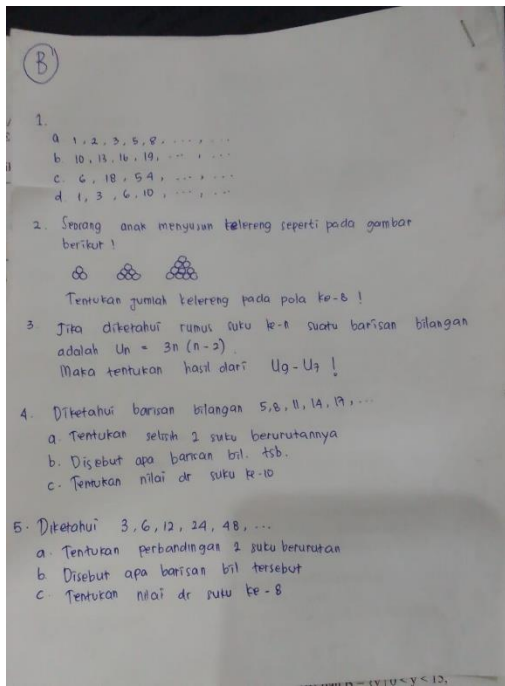 B
1.
a 1, 2, 3, 5, 8, ..., ...
b. 10, 13, 16, 19, ..., ...
c. 6, 18, 54, ..., ...
d. 1, 3, 6, 10, ..., ...
2. Seorang anak menyusun kelereng seperti pada gambar
berikut !
Tentukan jumlah kelereng pada pola ke-8 !
3. Jika diketahui rumus suku ke-n suatu barisan bilangan
adalah Un = 3n (n-2).
Maka tentukan hasil dari U9 - U7 !
4. Diketahui barisan bilangan 5, 8, 11, 14, 17, ...
a. Tentukan selisih 2 suku berurutannya
b. Disebut apa barisan bil. tsb.
c. Tentukan nilai dr suku ke-10
5. Diketahui 3, 6, 12, 24, 48, ...
a. Tentukan perbandingan 2 suku berurutan
b. Disebut apa barisan bil tersebut
c. Tentukan nilai dr suku ke-8